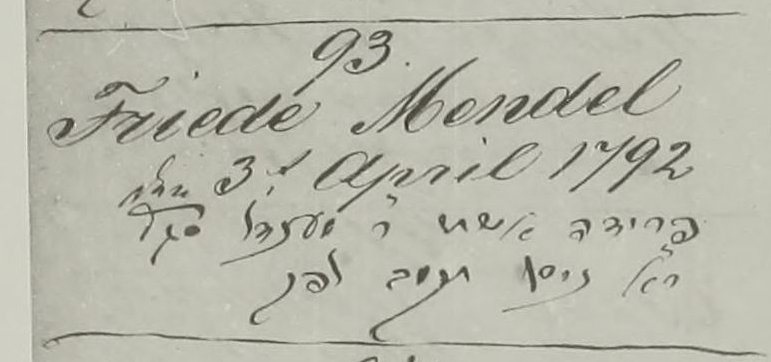 93.
Friede Mendel
3t April 1792
פרידה אשת ר' מענדל סג"ל
י"א ניסן תקנב לפק